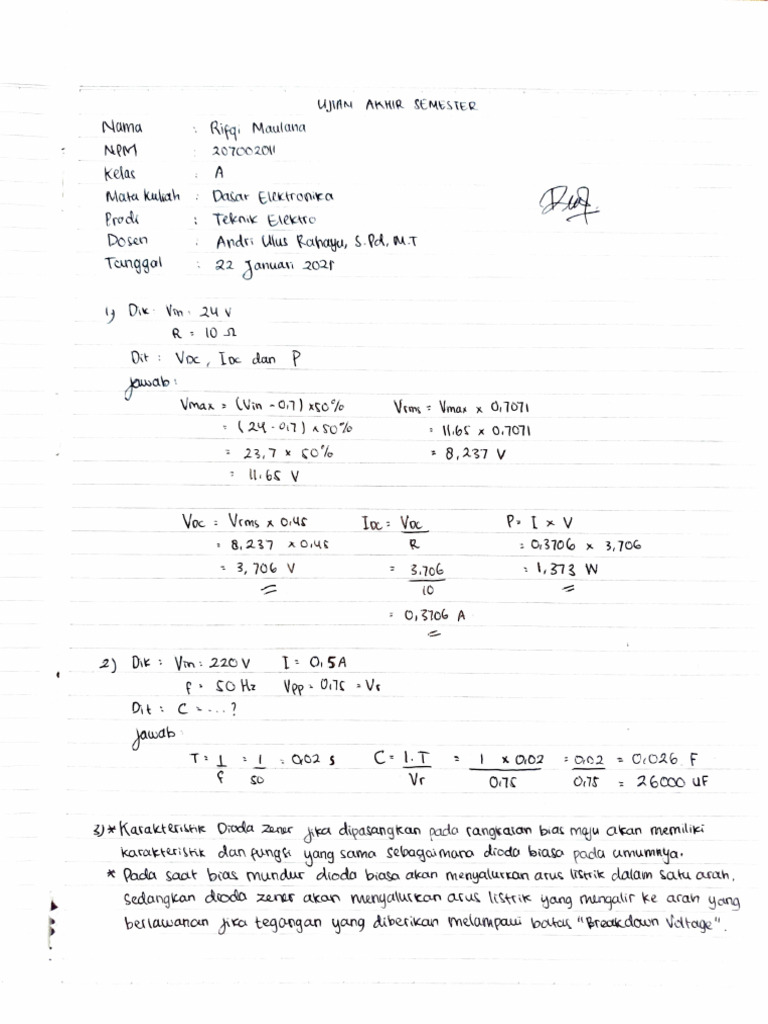 UJIAN AKHIR SEMESTER
Nama : Rifqi Maulana
NPM : 207002011
Kelas : A
Mata Kuliah : Dasar Elektronika
Prodi : Teknik Elektro
Dosen : Andri Ulus Rahayu, S.Pd, M.T
Tanggal : 22 Januari 2021
1) Dik : Vin : 24 V
R = 10 Ω
Dit : VDC, IDC dan P
Jawab :
Vmax = (Vin - 0,7) x 50% Vrms = Vmax x 0,7071
= (24 - 0,7) x 50% = 11.65 x 0.7071
= 23,7 x 50% = 8,237 V
= 11.65 V
VDC = Vrms x 0,45 IDC = VDC / R P = I x V
= 8,237 x 0,45 = 3.706 / 10 = 0,3706 x 3,706
= 3,706 V = 0,3706 A = 1,373 W
2) Dik : Vin : 220 V I = 0,5 A
f = 50 Hz Vpp = 0,75 = Vr
Dit : C = ...?
Jawab :
T = 1/f = 1/50 = 0,02 s C = I.T / Vr = 1 x 0,02 / 0,75 = 0,02 / 0,75 = 0,026 F
= 26000 uF
3) * Karakteristik Dioda zener jika dipasangkan pada rangkaian bias maju akan memiliki
karakteristik dan fungsi yang sama sebagaimana dioda biasa pada umumnya.
* Pada saat bias mundur dioda biasa akan menyalurkan arus listrik dalam satu arah,
Sedangkan dioda zener akan menyalurkan arus listrik yang mengalir ke arah yang
berlawanan jika tegangan yang diberikan melampaui batas "Breakdown Voltage".